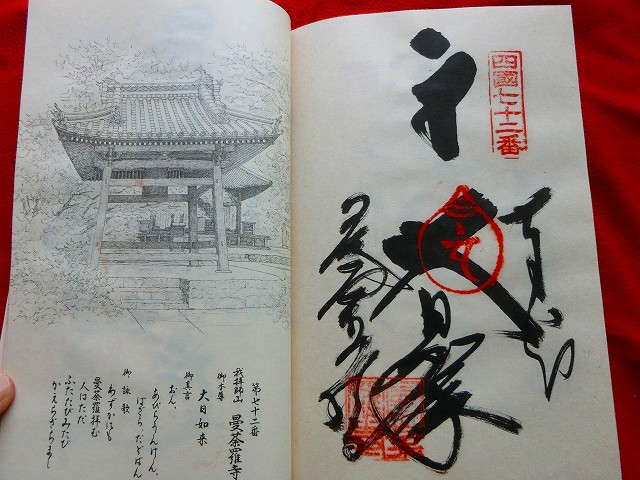 四國七十二番
大日
第七十二番
我拝師山 曼荼羅寺
御本尊
大日如来
御真言
おん、
あびらうんけん、
ばざら、だどばん
御詠歌
わずかにも
曼荼羅拝む
人はただ
ふたたびみたび
かえらざらまし